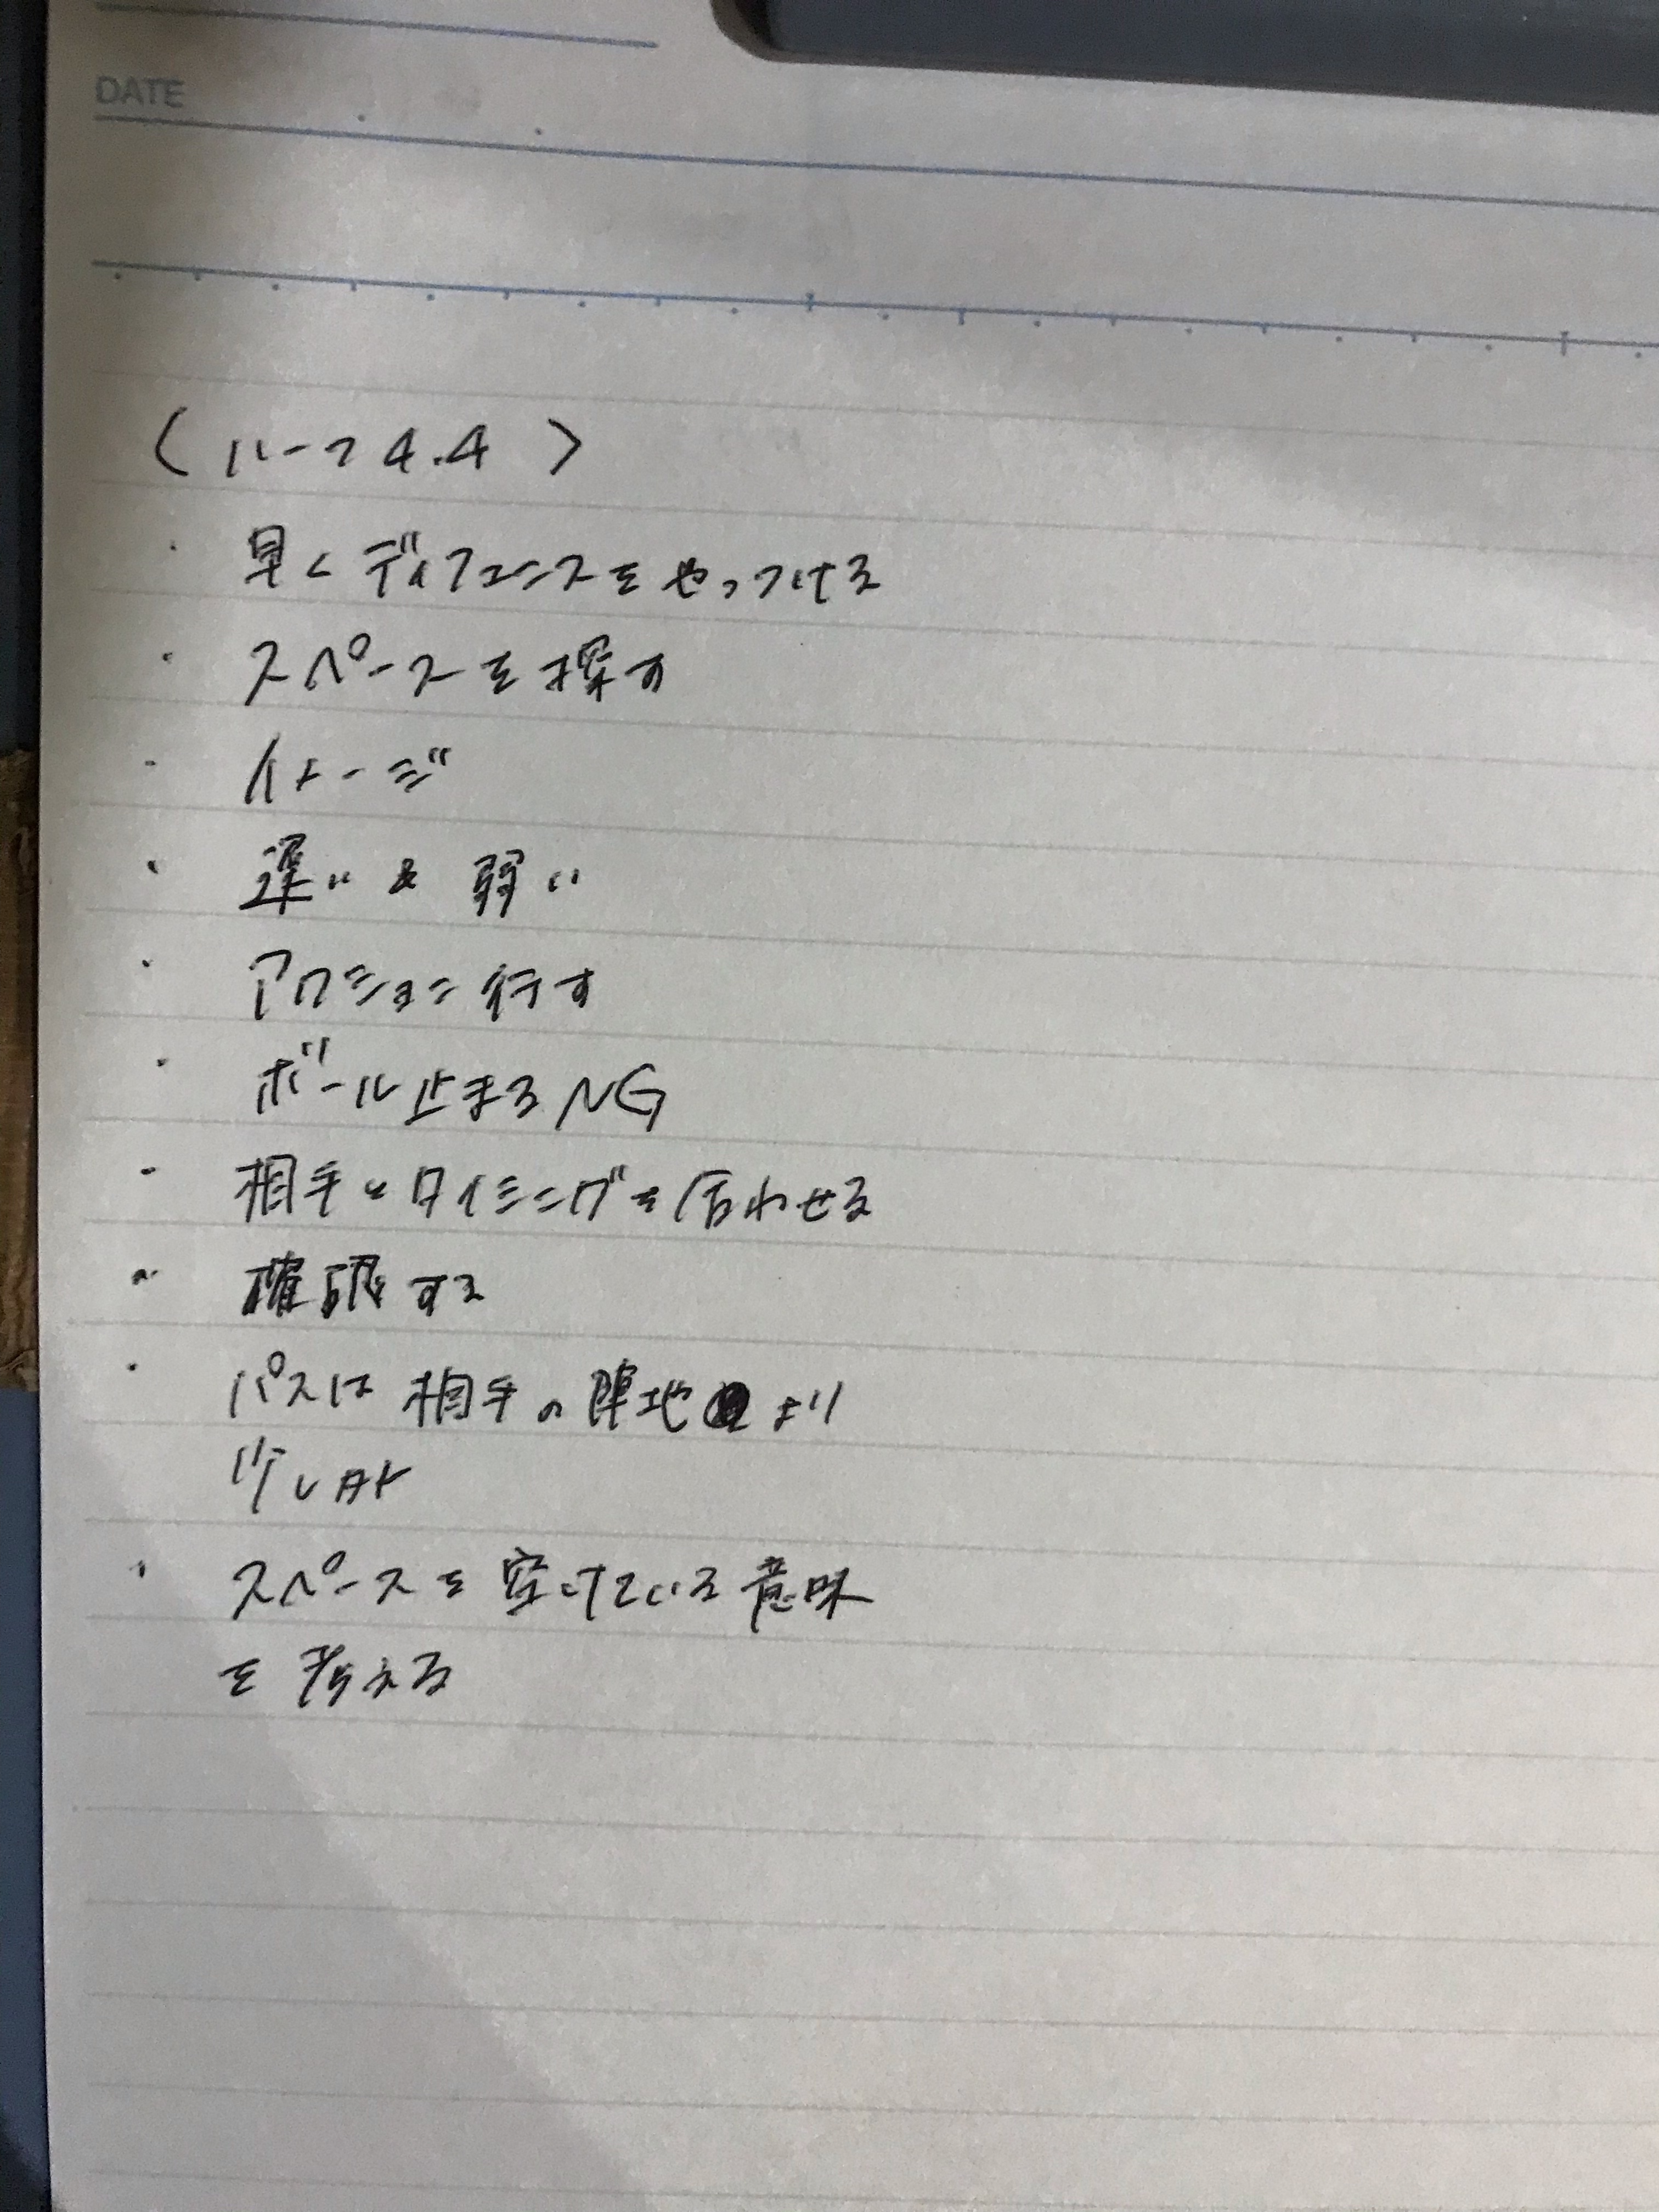 DATE
〈ハーフ4.4〉
・早くディフェンスをやっつける
・スペースを探す
・イメージ
・遅い&弱い
・アクション行す
・ボール止まるNG
・相手とタイミングを合わせる
・確認する
・パスは相手の陣地より
・スペースを空けている意味
を考える